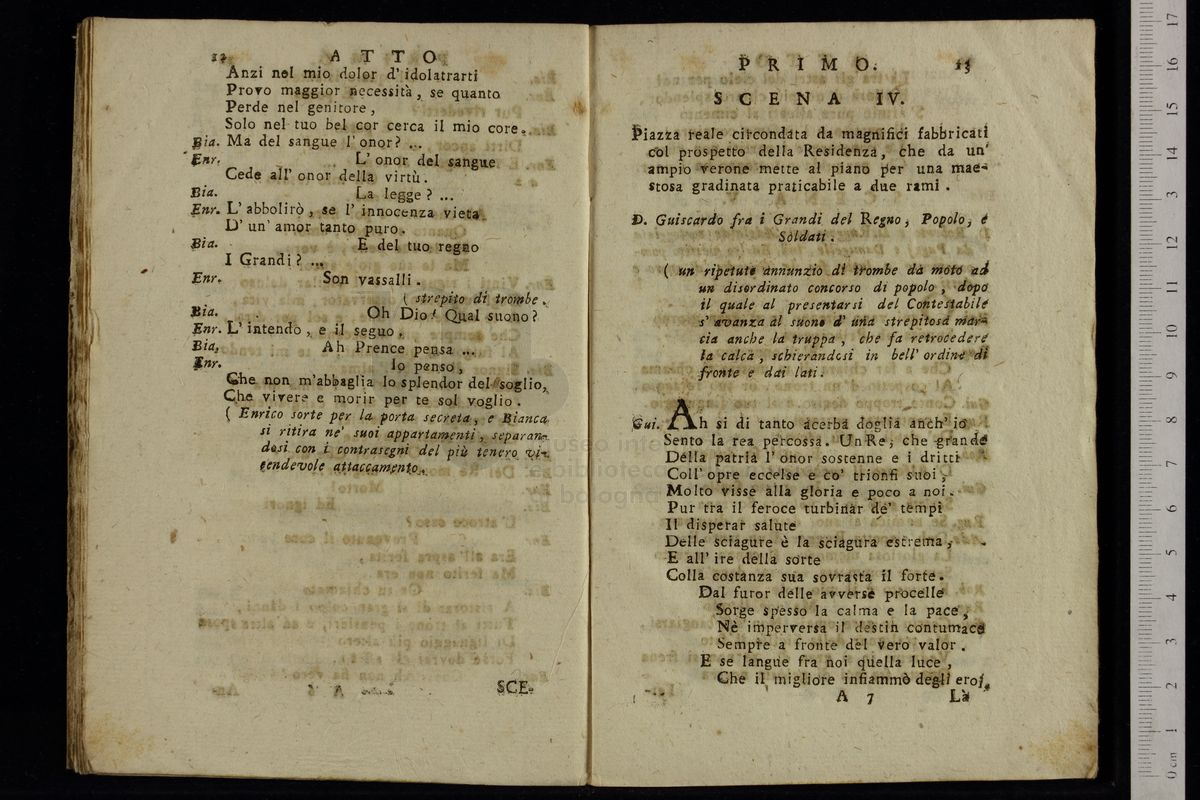 12 ATTO
Anzi nel mio dolor d' idolatrarti
Provo maggior necessità, se quanto
Perde nel genitore,
Solo nel tuo bel cor cerca il mio core.
Bia. Ma del sangue l' onor? ...
Enr. L' onor del sangue
Cede all' onor della virtù.
Bia. La legge? ...
Enr. L' abbolirò, se l' innocenza vieta
D' un' amor tanto puro.
Bia. E del tuo regno
I Grandi? ...
Enr. Son vassalli.
( strepito di trombe.
Bia. Oh Dio! Qual suono?
Enr. L' intendo, e il seguo.
Bia. Ah Prence pensa ...
Enr. Io penso,
Che non m'abbaglia lo splendor del soglio,
Che vivere e morir per te sol voglio.
( Enrico sorte per la porta secreta, e Bianca
si ritira ne' suoi appartamenti, separan-
dosi con i contrasegni del più tenero vi-
cendevole attaccamento.
A 6 SCE-
PRIMO. 13
SCENA IV.
Piazza reale circondata da magnifici fabbricati
col prospetto della Residenza, che da un'
ampio verone mette al piano per una mae-
stosa gradinata praticabile a due rami.
D. Guiscardo fra i Grandi del Regno, Popolo, e
Soldati.
( un ripetuto annunzio di trombe dà moto ad
un disordinato concorso di popolo, dopo
il quale al presentarsi del Contestabile
s' avanza al suono d' una strepitosa mar-
cia anche la truppa, che fa retrocedere
la calca, schierandosi in bell' ordine di
fronte e dai lati.
Gui. Ah si di tanto acerba doglia anch' io
Sento la rea percossa. Un Re, che grande
Della patria l' onor sostenne e i dritti
Coll' opre eccelse e co' trionfi suoi,
Molto visse alla gloria e poco a noi.
Pur tra il feroce turbinar de' tempi
Il disperar salute
Delle sciagure è la sciagura estrema,
E all' ire della sorte
Colla costanza sua sovrasta il forte.
Dal furor delle avverse procelle
Sorge spesso la calma e la pace,
Nè imperversa il destin contumace
Sempre a fronte del vero valor.
E se langue fra noi quella luce,
Che il migliore infiammò degli eroi,
A 7 Là